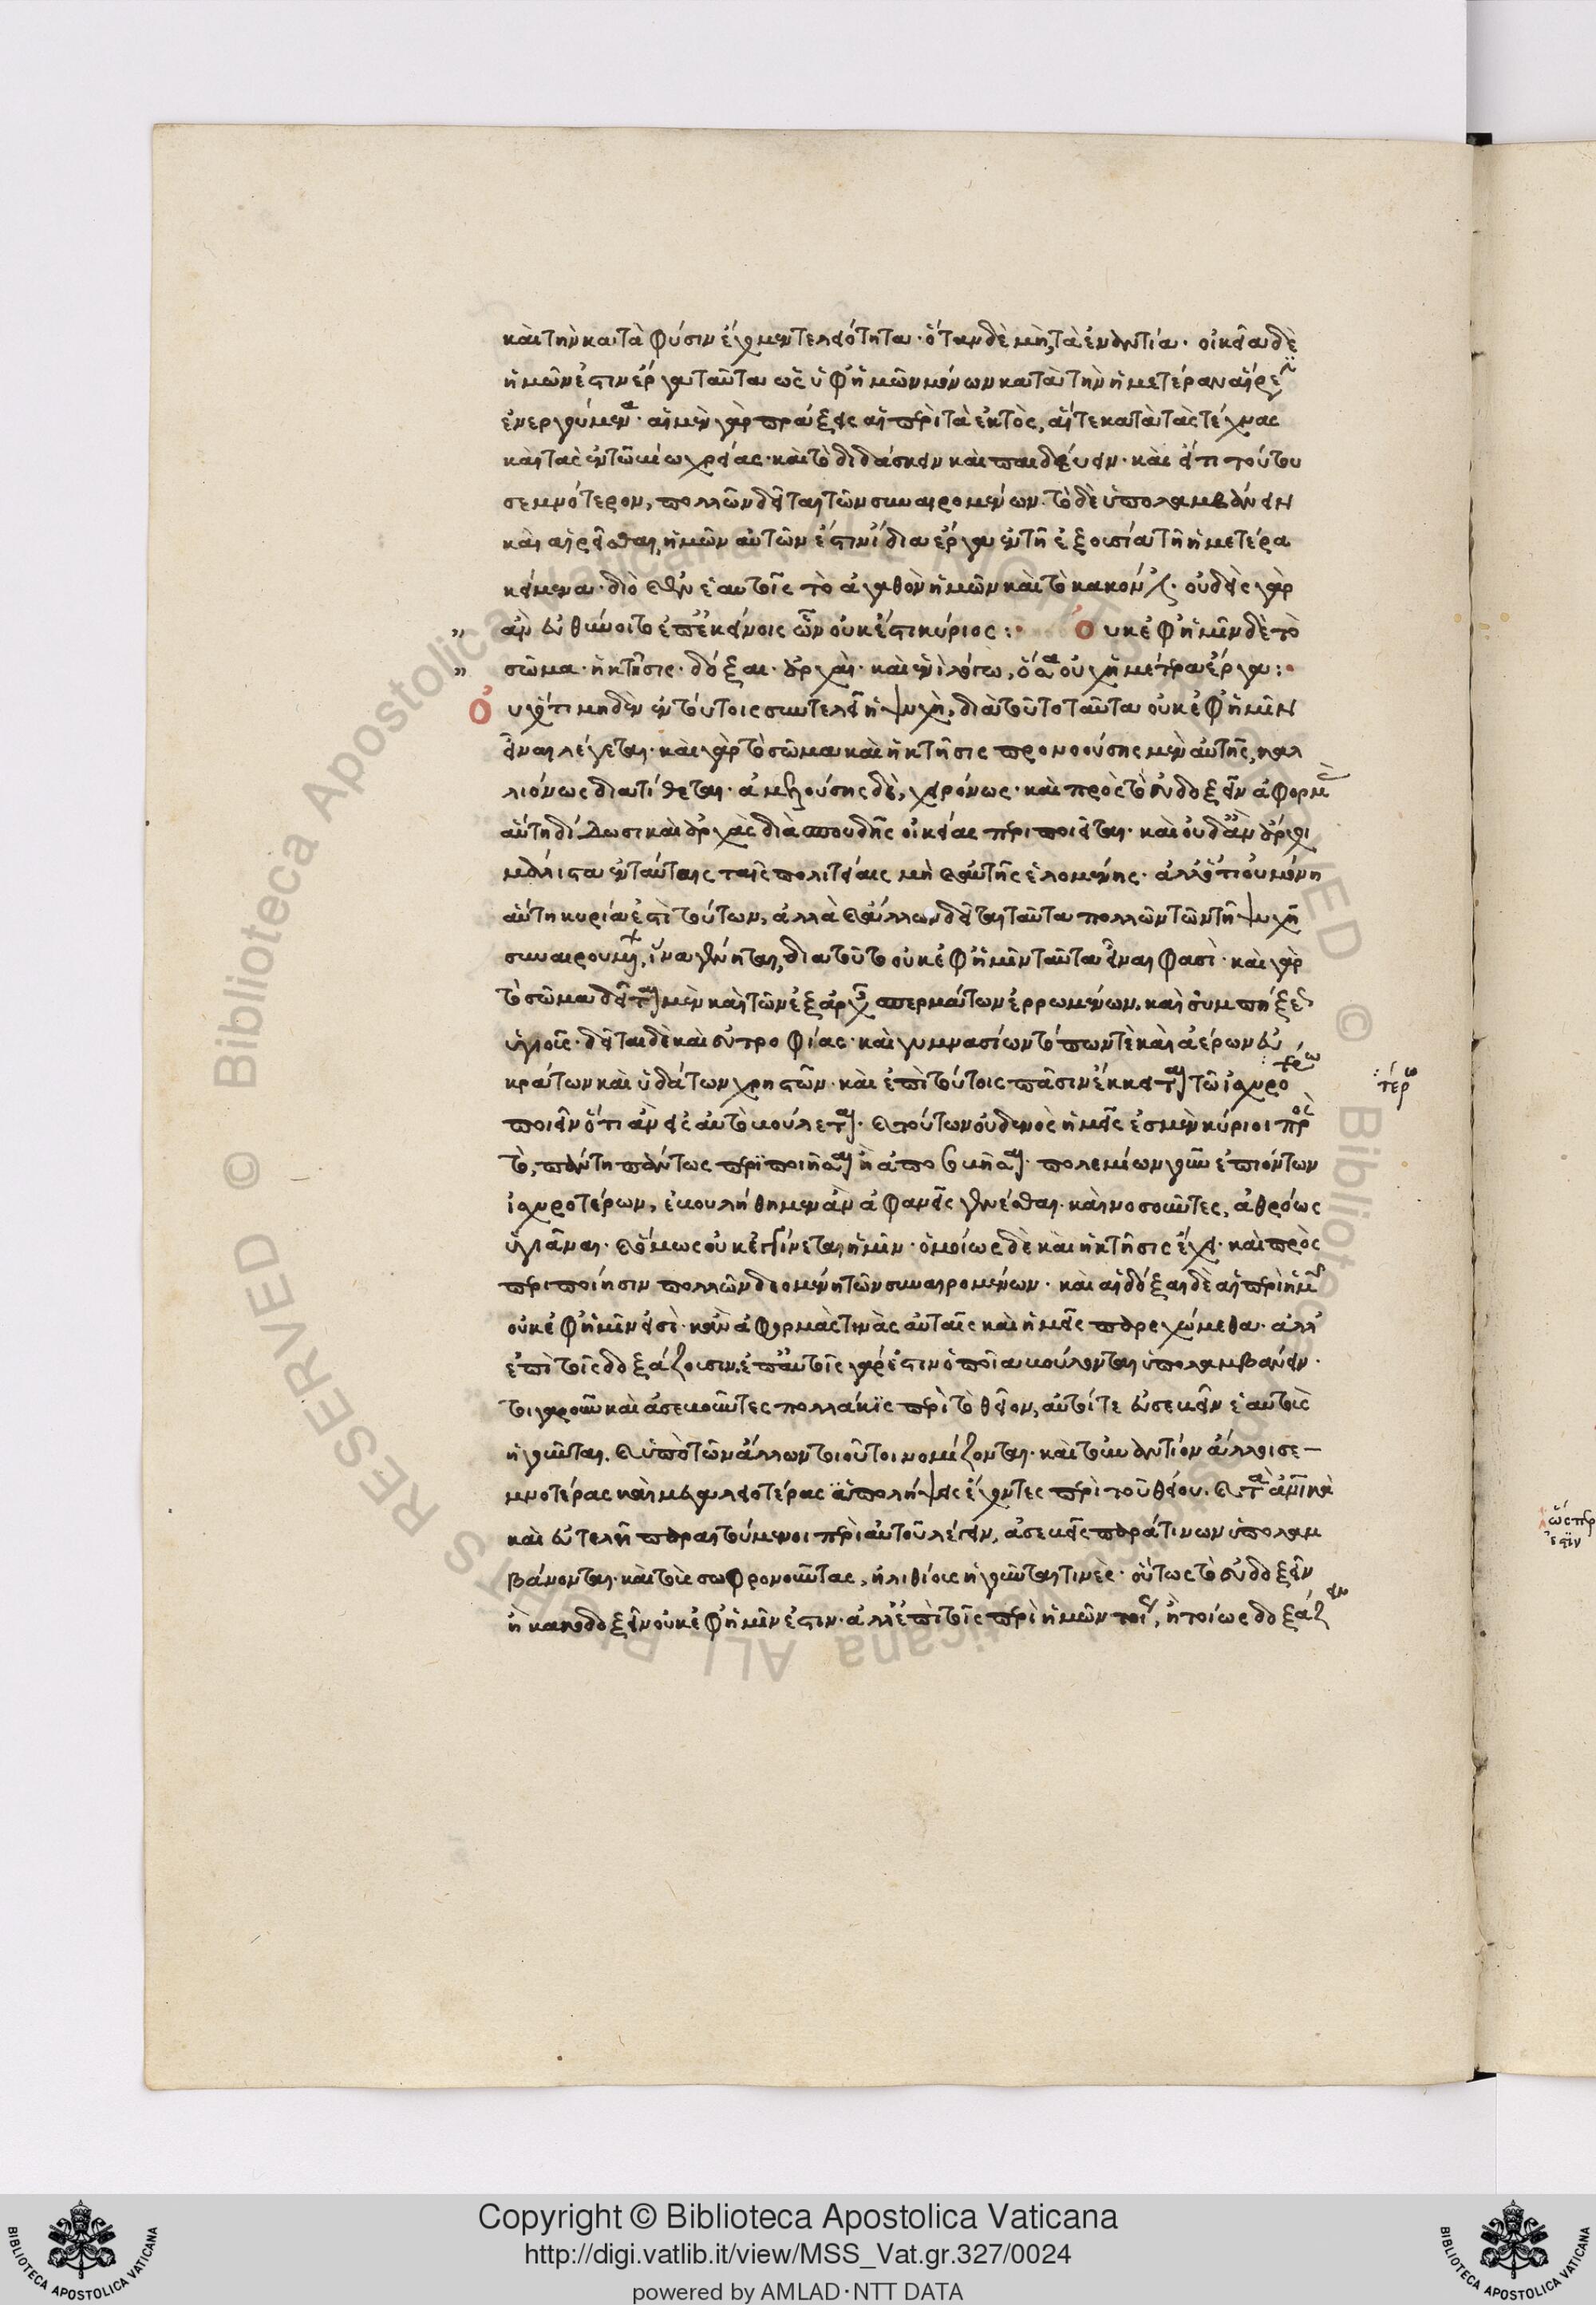 καὶ τὴν κατὰ φύσιν ἔχομεν τελειότητα· ὅταν δὲ μὴ, τὰ ἐναντία· οἰκεῖα δὲ
ἡμῶν ἐστιν ἔργα ταῦτα ὡς ὑφ' ἡμῶν μόνων κατὰ τὴν ἡμετέραν αἵρεσιν
ἐνεργούμενα· αἱ μὲν γὰρ πράξεις αἱ περὶ τὰ ἐκτὸς, αἵ τε κατὰ τὰς τέχνας
καὶ τὰς ἐν τῶ βίω χρείας· καὶ τὸ διδάσκειν καὶ παιδεύειν· καὶ εἴ τι τούτου
σεμνότερον, πολλῶν δεῖται τῶν συναιρομένων· τὸ δὲ ὑπολαμβάνειν
καὶ αἱρεῖσθαι, ἡμῶν αὐτῶν ἐστιν ἴδια ἔργα ἐν τῆ ἐξουσία τῆ ἡμετέρα
κείμενα· διὸ ἐν ἑαυτοῖς τὸ ἀγαθὸν ἡμῶν καὶ τὸ κακόν ἐστι· οὐδεὶς γὰρ
" ἂν εὐθύνοιτο ἐπ' ἐκείνοις ὧν οὐκ ἔστι κύριος: Οὐκ ἐφ' ἡμῖν δὲ τὸ
" σῶμα· ἡ κτῆσις· δόξαι· ἀρχαὶ· καὶ ἑνὶ λόγω, ὅσα οὐχ ἡμέτερα ἔργα:
Οὐχ ὅτι μηδὲν ἐν τούτοις συντελεῖ ἡ ψυχὴ, διὰ τοῦτο ταῦτα οὐκ ἐφ' ἡμῖν
εἶναι λέγεται· καὶ γὰρ τὸ σῶμα καὶ ἡ κτῆσις προνοούσης μὲν αὐτῆς, καλ
λιόνως διατίθεται· ἀμελούσης δὲ, χειρόνως· καὶ πρὸς τὸ εὐδοξεῖν ἀφορμὰς
αὕτη δίδωσι καὶ ἀρχὰς διὰ σπουδῆς οἰκείας περιποιεῖται· καὶ οὐδ' ἂν ἄρχοι
μάλιστα ἐν ταύταις ταῖς πολιτείαις μὴ καὶ αὐτῆς ἑλομένης· ἀλλ' ὅτι οὐ μόνη
αὕτη κυρία ἐστὶ τούτων, ἀλλὰ καὶ ἄλλων δεῖται ταῦτα πολλῶν τῶν τῆ ψυχῆ
συναιρουμένων, ἵνα γένηται, διὰ τοῦτο οὐκ ἐφ' ἡμῖν ταῦτα εἶναι φασί· καὶ γὰρ
τὸ σῶμα δεῖται μὲν καὶ τῶν ἐξ ἀρχῆς σπερμάτων ἐρρωμένων, καὶ συμπήξεως
ὑγιοῦς· δεῖται δὲ καὶ εὐτροφίας· καὶ γυμνασίων τόπων τὲ καὶ ἀέρων εὐ
κράτων καὶ ὑδάτων χρηστῶν· καὶ ἐπὶ τούτοις πᾶσιν ἔκκειται τῶ ἰσχυρο
:τέρω
ποιεῖν ὅτι ἂν εἰς αὐτὸ βούλεται· καὶ τούτων οὐδενὸς ἡμεῖς ἐσμὲν κύριοι πρὸς
τὸ, πάντη πάντως περιποιῆσαι ἢ ἀποθέσθαι· πολεμίων γοῦν ἐπιόντων
ἰσχυροτέρων, ἐβουλήθημεν ἂν ἀφανεῖς γενέσθαι· καὶ νοσοῦντες, ἀθρόως
ὑγιᾶναι· καὶ ὅμως οὐκ ἐγγίνεται ἡμῖν· ὁμοίως δὲ καὶ ἡ κτῆσις ἔχει· καὶ πρὸς
περιποίησιν πολλῶν δεομένη τῶν συναιρομένων· καὶ αἱ δόξαι δὲ αἱ περὶ ἡμῶν
οὐκ ἐφ' ἡμῖν εἰσί· κἂν ἀφορμὰς τινὰς αὐταῖς καὶ ἡμεῖς παρεχώμεθα· ἀλλ'
ἐπὶ τοῖς δοξάζουσιν· ἐπ' αὐτοῖς γάρ ἐστιν ὁποῖα βούλονται ὑπολαμβάνειν·
τοιγαροῦν καὶ ἀσεβοῦντες πολλάκις περὶ τὸ θεῖον, αὐτοί τε εὐσεβεῖν ἑαυτοὺς
ἡγοῦνται· καὶ ὑπὸ τῶν ἄλλων τοιοῦτοι νομίζονται· καὶ τοὐναντίον ἄλλοι σε-
μνοτέρας καὶ μεγαλειοτέρας ὑπολήψεις ἔχοντες περὶ τοῦ θεοῦ
καὶ εὐτελῆ παραιτούμενοι περὶ αὐτοῦ λέγειν, ἀσεβεῖς παρά τινων ὑπολαμ
βάνονται· καὶ τοὺς σωφρονοῦντας, ἠλιθίους ἡγοῦνται τινές· οὕτως τὸ εὐδοξεῖν
ἢ κακοδοξεῖν οὐκ ἐφ' ἡμῖν ἐστιν· ἀλλ' ἐπὶ τοῖς περὶ ἡμῶν τοίως, ἢ τοίως δοξάζειν
Copyright © Biblioteca Apostolica Vaticana
http://digi.vatlib.it/view/MSS_Vat.gr.327/0024
powered by AMLAD·NTT DATA